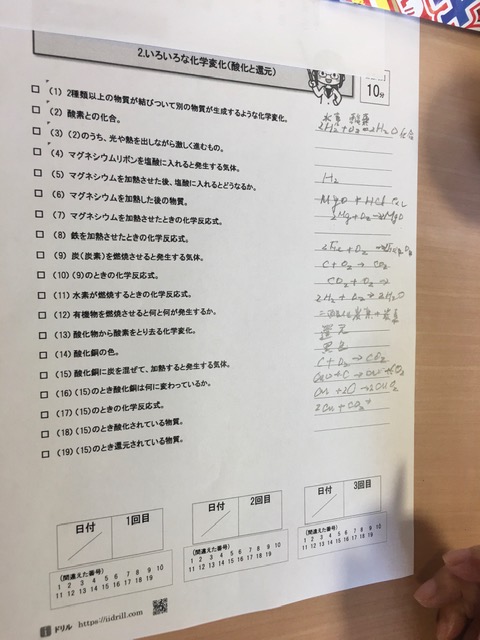 2.いろいろな化学変化(酸化と還元)
10分
(1) 2種類以上の物質が結びついて別の物質が生成するような化学変化。
水素 酸素
(2) 酸素との化合。
2H₂+O₂→2H₂O 化合
(3) (2)のうち、光や熱を出しながら激しく進むもの。
(4) マグネシウムリボンを塩酸に入れると発生する気体。
H₂
(5) マグネシウムを加熱させた後、塩酸に入れるとどうなるか。
(6) マグネシウムを加熱した後の物質。
MgO + HCl
(7) マグネシウムを加熱させたときの化学反応式。
2Mg+O₂→2MgO
(8) 鉄を加熱させたときの化学反応式。
(9) 炭(炭素)を燃焼させると発生する気体。
C+O₂→CO₂
(10) (9)のときの化学反応式。
CO₂+O₂→
(11) 水素が燃焼するときの化学反応式。
2H₂+O₂→2H₂O
(12) 有機物を燃焼させると何と何が発生するか。
(13) 酸化物から酸素をとり去る化学変化。
還元
(14) 酸化銅の色。
黒色
(15) 酸化銅に炭を混ぜて、加熱すると発生する気体。
C+O₂→CO₂
(16) (15)のとき酸化銅は何に変わっているか。
(17) (15)のときの化学反応式。
(18) (15)のとき酸化されている物質。
2Cu+CO₂
(19) (15)のとき還元されている物質。
日付 1回目
(間違えた番号)
1 2 3 4 5 6 7 8 9 10
11 12 13 14 15 16 17 18 19
日付 2回目
(間違えた番号)
1 2 3 4 5 6 7 8 9 10
11 12 13 14 15 16 17 18 19
日付 3回目
(間違えた番号)
1 2 3 4 5 6 7 8 9 10
11 12 13 14 15 16 17 18 19
ドリル https://iidrill.com